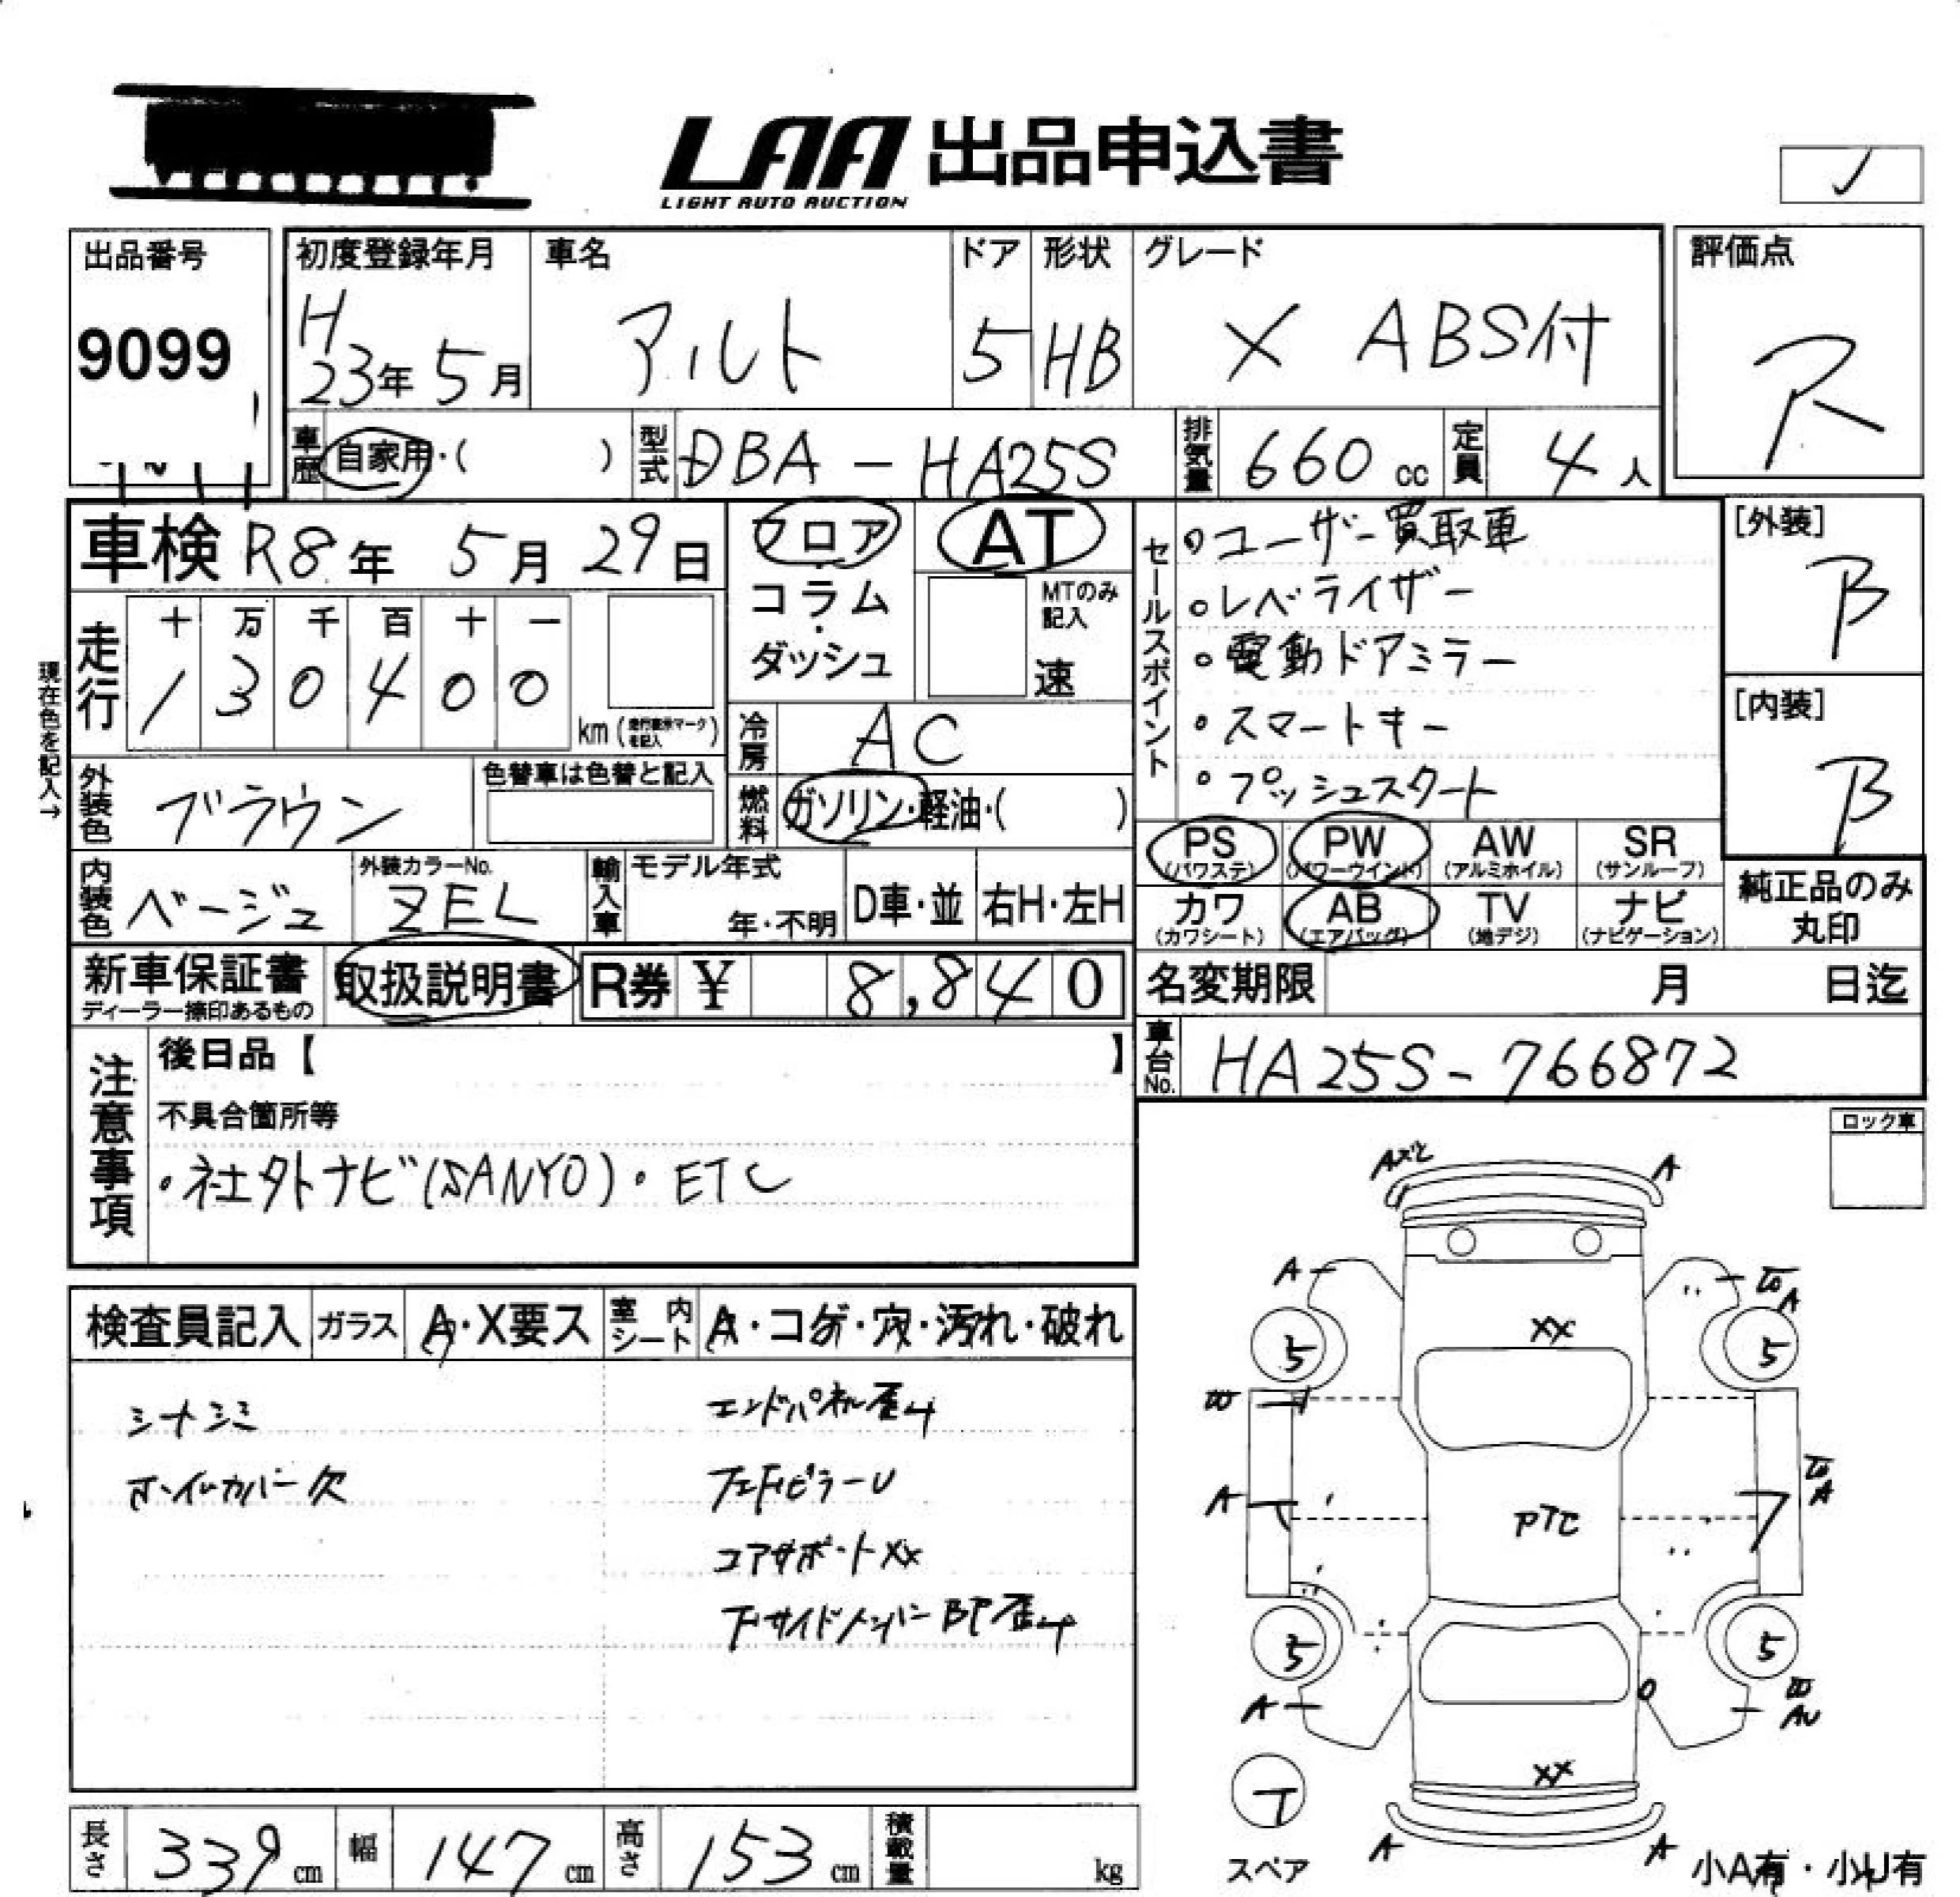 LAA 出品申込書
LIGHT AUTO AUCTION
出品番号
9099
初度登録年月
H
23年 5月
車名
アルト
ドア
5
形状
HB
グレード
X ABS付
評価点
R
車歴 自家用・( )
型式 DBA - HA25S
排気量 660 cc
定員 4 人
車検 R8年 5月 29日
フロア
・
コラム
・
ダッシュ
AT
MTのみ
記入
速
セールスポイント
・ユーザー買取車
・レベライザー
・電動ドアミラー
・スマートキー
・プッシュスタート
[外装]
B
[内装]
B
現在色を記入→
走行
十 万 千 百 十 一
1 3 0 4 0 0
km
冷房 AC
燃料 ガソリン・軽油・( )
外装色 ブラウン
色替車は色替と記入
内装色 ベージュ
外装カラーNo.
ZEL
輸入車
モデル年式
年・不明
D車・並
右H・左H
PS
(パワステ)
PW
(パワーウインド)
AW
(アルミホイル)
SR
(サンルーフ)
カワ
(カワシート)
AB
(エアバッグ)
TV
(地デジ)
ナビ
(ナビゲーション)
純正品のみ
丸印
新車保証書
ディーラー捺印あるもの
取扱説明書
R券 ¥ 8,840
名変期限 月 日迄
車台No. HA25S-766872
注意事項
後日品【 】
不具合箇所等
・社外ナビ(SANYO)・ETC
ロック車
検査員記入
ガラス
A・X要ス
室内シート
A・コゲ・穴・汚れ・破れ
シートシミ
ホイルカバー欠
エンドパネル歪み
コアサポートXX
A
A
A
A
XX
5
5
W
A
A
PTC
5
5
A
XX
T
スペア
A
A
小A有・小U有
長さ 339 cm
幅 147 cm
高さ 153 cm
積載量 kg